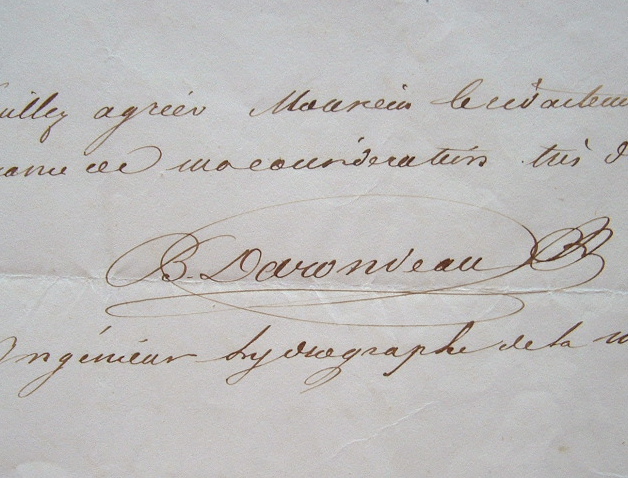 uillez agréer Monsieur le rédacteur
ance de ma considération très d
B. Darondeau
Ingénieur hydrographe de la m